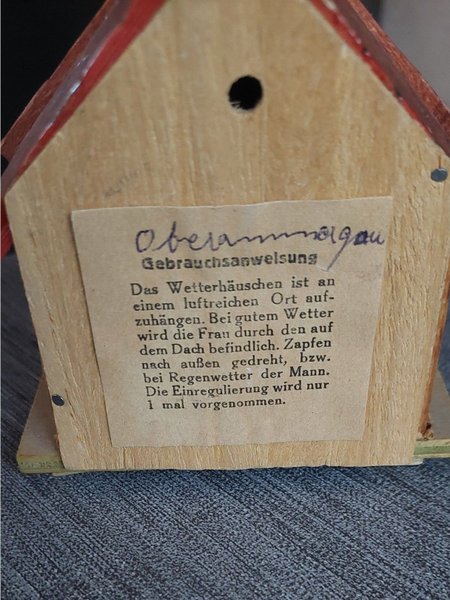 Oberammergau
Gebrauchsanweisung
Das Wetterhäuschen ist an
einem luftreichen Ort auf-
zuhängen. Bei gutem Wetter
wird die Frau durch den auf
dem Dach befindlich. Zapfen
nach außen gedreht, bzw.
bei Regenwetter der Mann.
Die Einregulierung wird nur
1 mal vorgenommen.